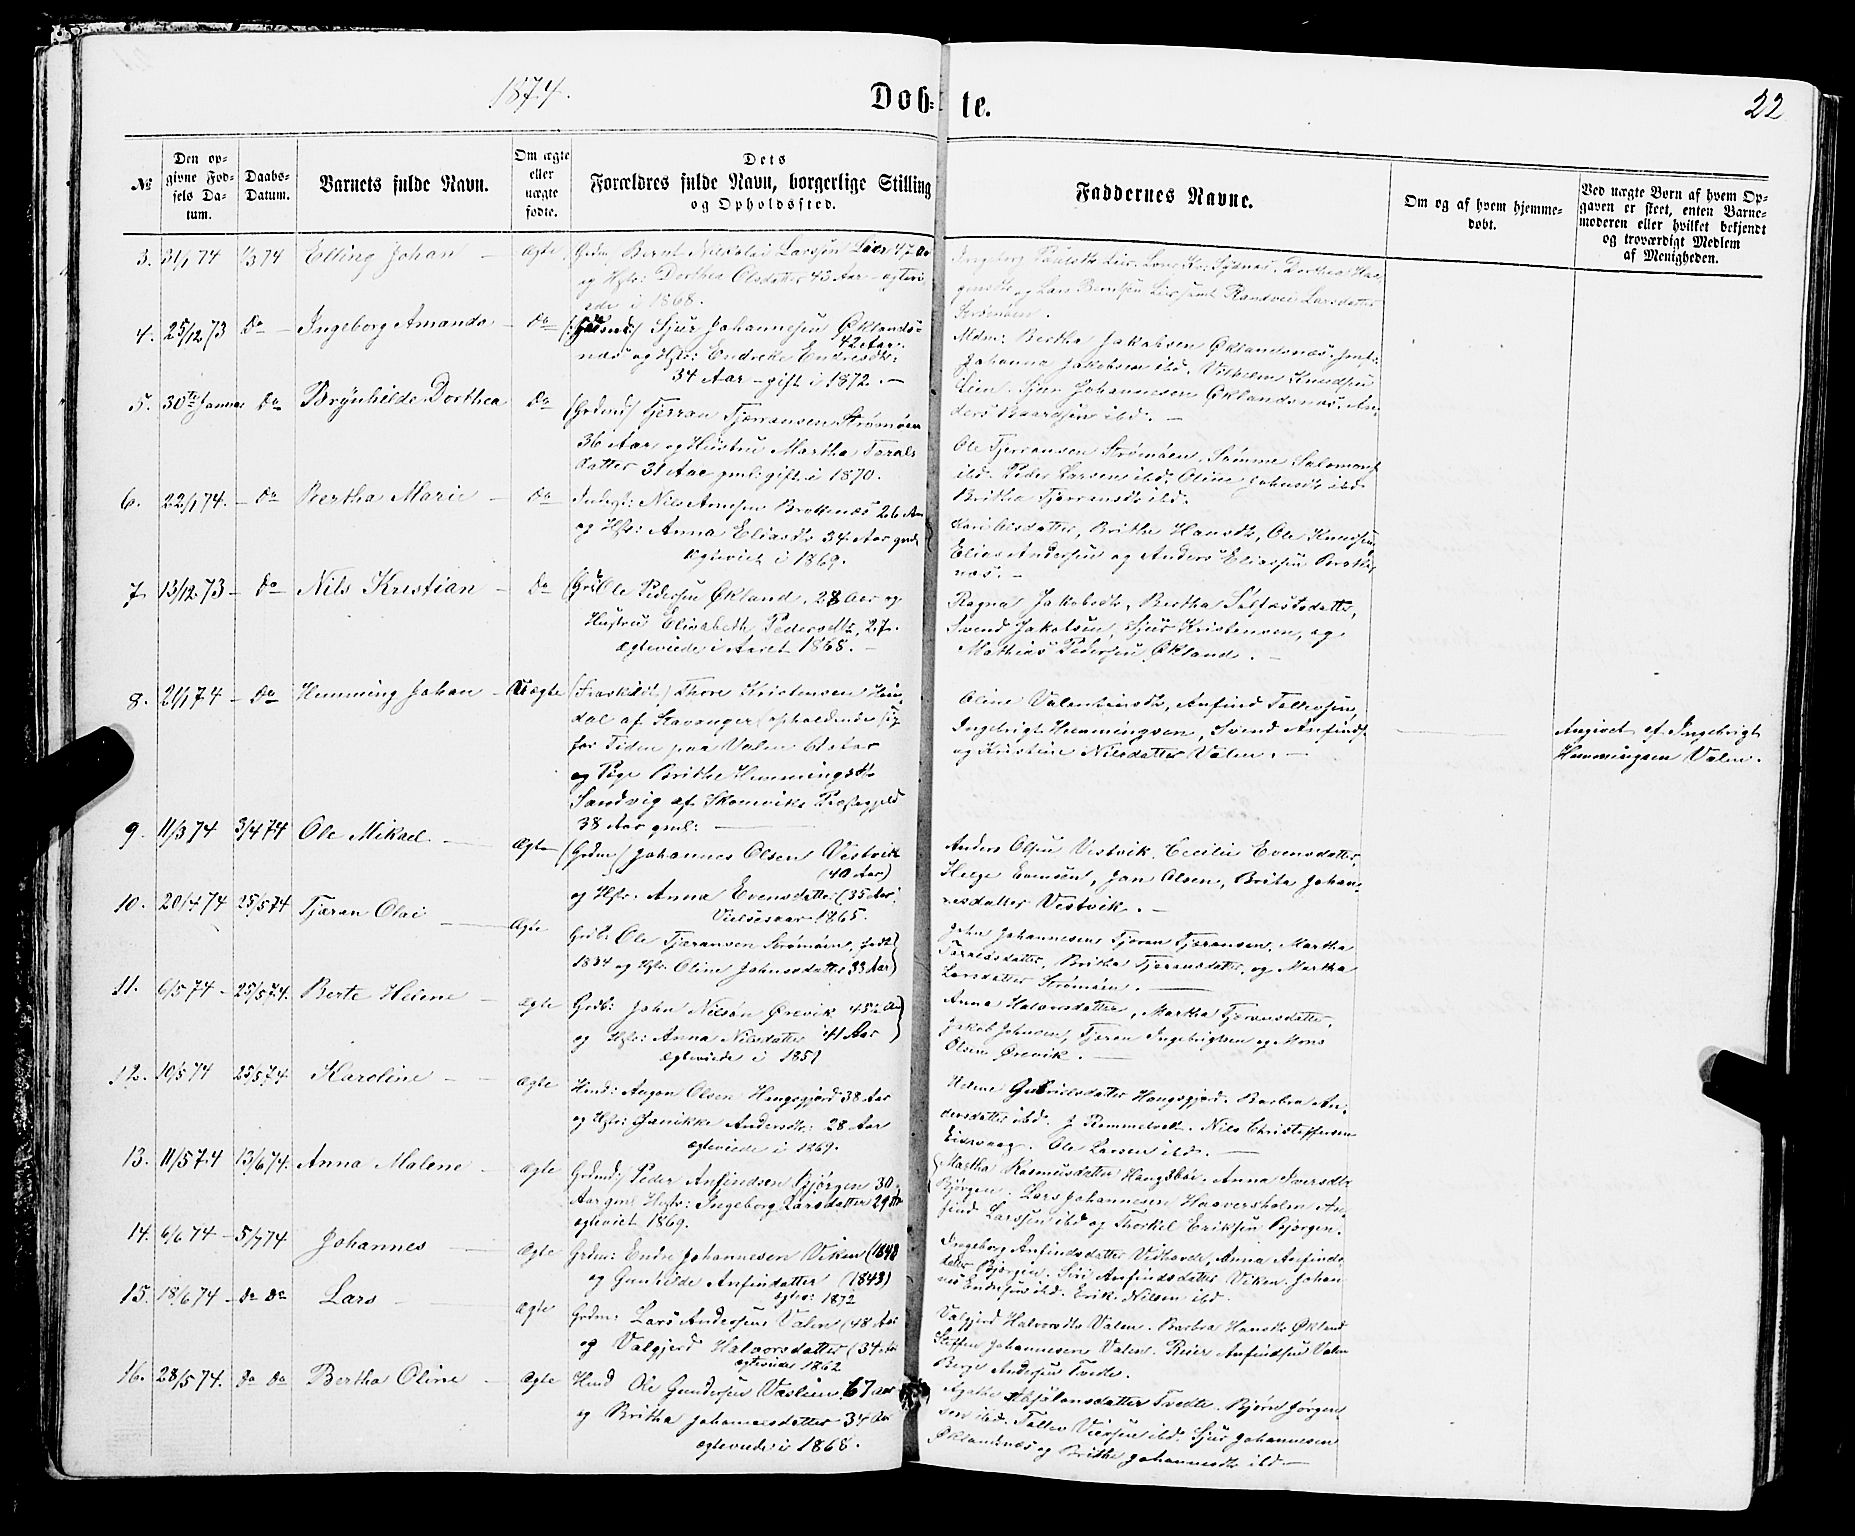 1874.
Døb-te.
22
№
Den op-
givne Fød-
sels Da-
tum.
Daabs-
Datum.
Barnets fulde Navn.
Om ægte
eller
uægte
fødte.
Dets
Forældres fulde Navn, borgerlige Stilling
og Opholdssted.
Faddernes Navne.
Om og af hvem hjemme-
døbt.
Ved uægte Børn af hvem Op-
gaven er skeet, enten Barne-
moderen eller hvilket bekjendt
og troværdigt Medlem
af Menigheden.
3. 21/1 74 1/3 74 Elling Johan – Ægte
og Hstr: Dorthea Olsdatter 43 Aar – ægtevi-
ede i 1868.
4. 25/12 73 Do – Ingeborg Amanda – Do
Sjur Johannesen Øklands-
42 Aar.
næs og Hstr: Endreke Endresdtr:
34 Aar – gift i 1872. –
Mdm: Bertha Jakobsen Øklandsnæs, Jent:
Johanna Jakobsen ibd. Vilhelm Knudsen
Lien. Sjur Johannesen Øklandsnæs. An-
ders Baardsen ibd. –
5. 30te Januar Do Brynhilde Dorthea Do
(Grdmd) Tjerran Tjerransen Strømøen
36 Aar og Hustru Martha Tarals
datter 31 Aar gml: gift i 1870.
Ole Tjerransen Strømøen. Sønneve Salomons
ibd. Peder Larsen ibd. Oline Johnsdtr ibd.
Britha Tjerransdtr ibd.
6. 22/1 74. – Do Bertha Marie – Do
Indegt: Nils Arnesen Brattenæs 26 Aar
og Hstr: Anna Eliasdtr 34 Aar gml
Ægteviet i 1869.
Kari Olsdatter, Brithe Hansdtr, Ole Knudsen,
Elias Andersen og Anders Eliassen
næs. –
7. 13/12 73 – Do Nils Kristian – Do
Ole Pedersen Økland, 28 Aar og
Hustru Elisabeth Pedersdtr, 27.
Ægteviede i Aaret 1868. –
Ragna Jakobsdtr, Bertha Sjlfæstsdatter,
Svend Jakobsen, Sjur Kristensen, og
Mathias Pedersen Økland. –
8. 21/1 74 – Do Hemming Johan – Uægte
(Fraskildt) Thore Kristensen
dal af Stavanger (opholdende sig
for Tiden paa Valen
og Pige Brithe Hemmingsdtr
Sandvig af Skonviks Præstegjeld
38 Aar gml:
Oline Valentinsdtr, Anfind Tollevsen,
Ingebrigt Hemmingsen, Svend Anfinds
og Kristine Nilsdatter Valen. –
Angivet af Ingebrigt
Hemmingsen Valen.
9. 11/3 74 3/4 74 Ole Mikael – Ægte
(Grdm) Johannes Olsen Vestvik
(40 Aar)
og Hstr: Anna Evensdatter (35 Aar)
Vielsesaar 1865.
Anders Olsen Vestvik, Cecilie Evensdatter,
Helge Evensen, Jan Olsen, Brita Johan-
nesdatter Vestvik. –
10. 20/4 74 25/5 74 Tjæran Olai – Ægte
Grdb: Ole Tjæransen Strømøen, født
1834 og Hstr: Oline Johnsdatter 33 Aar
John Johannesen, Tjæran Tjæransen, Martha
Taralsdatter, Britha Tjæransdatter, og Martha
Larsdatter Strømøen. –
11. 6/5 74 – 25/5 74. Berte Helene – Ægte
Grdb: John Nilsøn Ørevik 45½ Aar
og Hstr: Anna Nilsdatter 41 Aar
ægteviede i 1851
Anna Halvorsdatter, Martha Tjæransdatter,
Jakob Johnsen, Tjæran Ingebrigtsen og Mons
Olsen Ørevik. –
12. 10/5 74 25/5 74 Karoline – Ægte
Hmd: Aagon Olsen Haugsgjerd 38 Aar
og Hstr: Janikke Andersdtr: 28 Aar
ægteviede i 1869.
Helene Gabrielsdatter Haugsgjerd. Barbra An-
dersdatter ibd. J Rommetvedt. Nils Christoffersen
Eidsvaag. Ole Larsen ibd. –
13. 11/5 74 13/6 74. Anna Malene – Ægte
Grdmd: Peder Anfindsen Bjørgen 30
Aar gml: Hstr: Ingeborg Larsdatter 29 Aar
ægteviet 1869.
Martha Rasmusdatter Haugsbøe. Anna Iversdtr
Bjørgen. Lars Johannesen Haaversholm An-
find Larssen ibd og Thorkel Eriksen Bjørgen.
14. 6/6 74 – 5/7 74 Johannes – Ægte
Grdm: Endre Johannesen Viken (1848
og Gunhilde Anfindatter (1843)
ægtev: 1872
Ingeborg Anfindsdatter Vidhavde, Anna Anfinds-
datter Bjørgen. Siri Anfindsdatter Viken. Johan-
nes Endresen ibd. Erik Nilsen ibd.
15. 18/6 74 – Do Do Lars – Ægte
Grdm: Lars Andersen Valen (48 Aar
og Valgjerd Halvorsdatter (34 Aar
ægteviede 1862
Valgjerd Halvorsdtr Valen. Barbra Hansdtr Økland
Steffen Johannesen Valen. Reier Anfindsen Valen
Berge Andersen Tvedte.
16. 28/5 74. Do Do Bertha Oline – Ægte
Hmd Ole Gundersen Væslien 67 Aar
og Britha Johannesdatter 34 Aar
ægteviede i 1868.
Agathe Skjælansdatter Tvedte. Bjørn Jørgen
sen ibd. Tollev Viersen ibd. Sjur Johannesen
Øklandsnæs og Brithe Johannesdtr ibd –